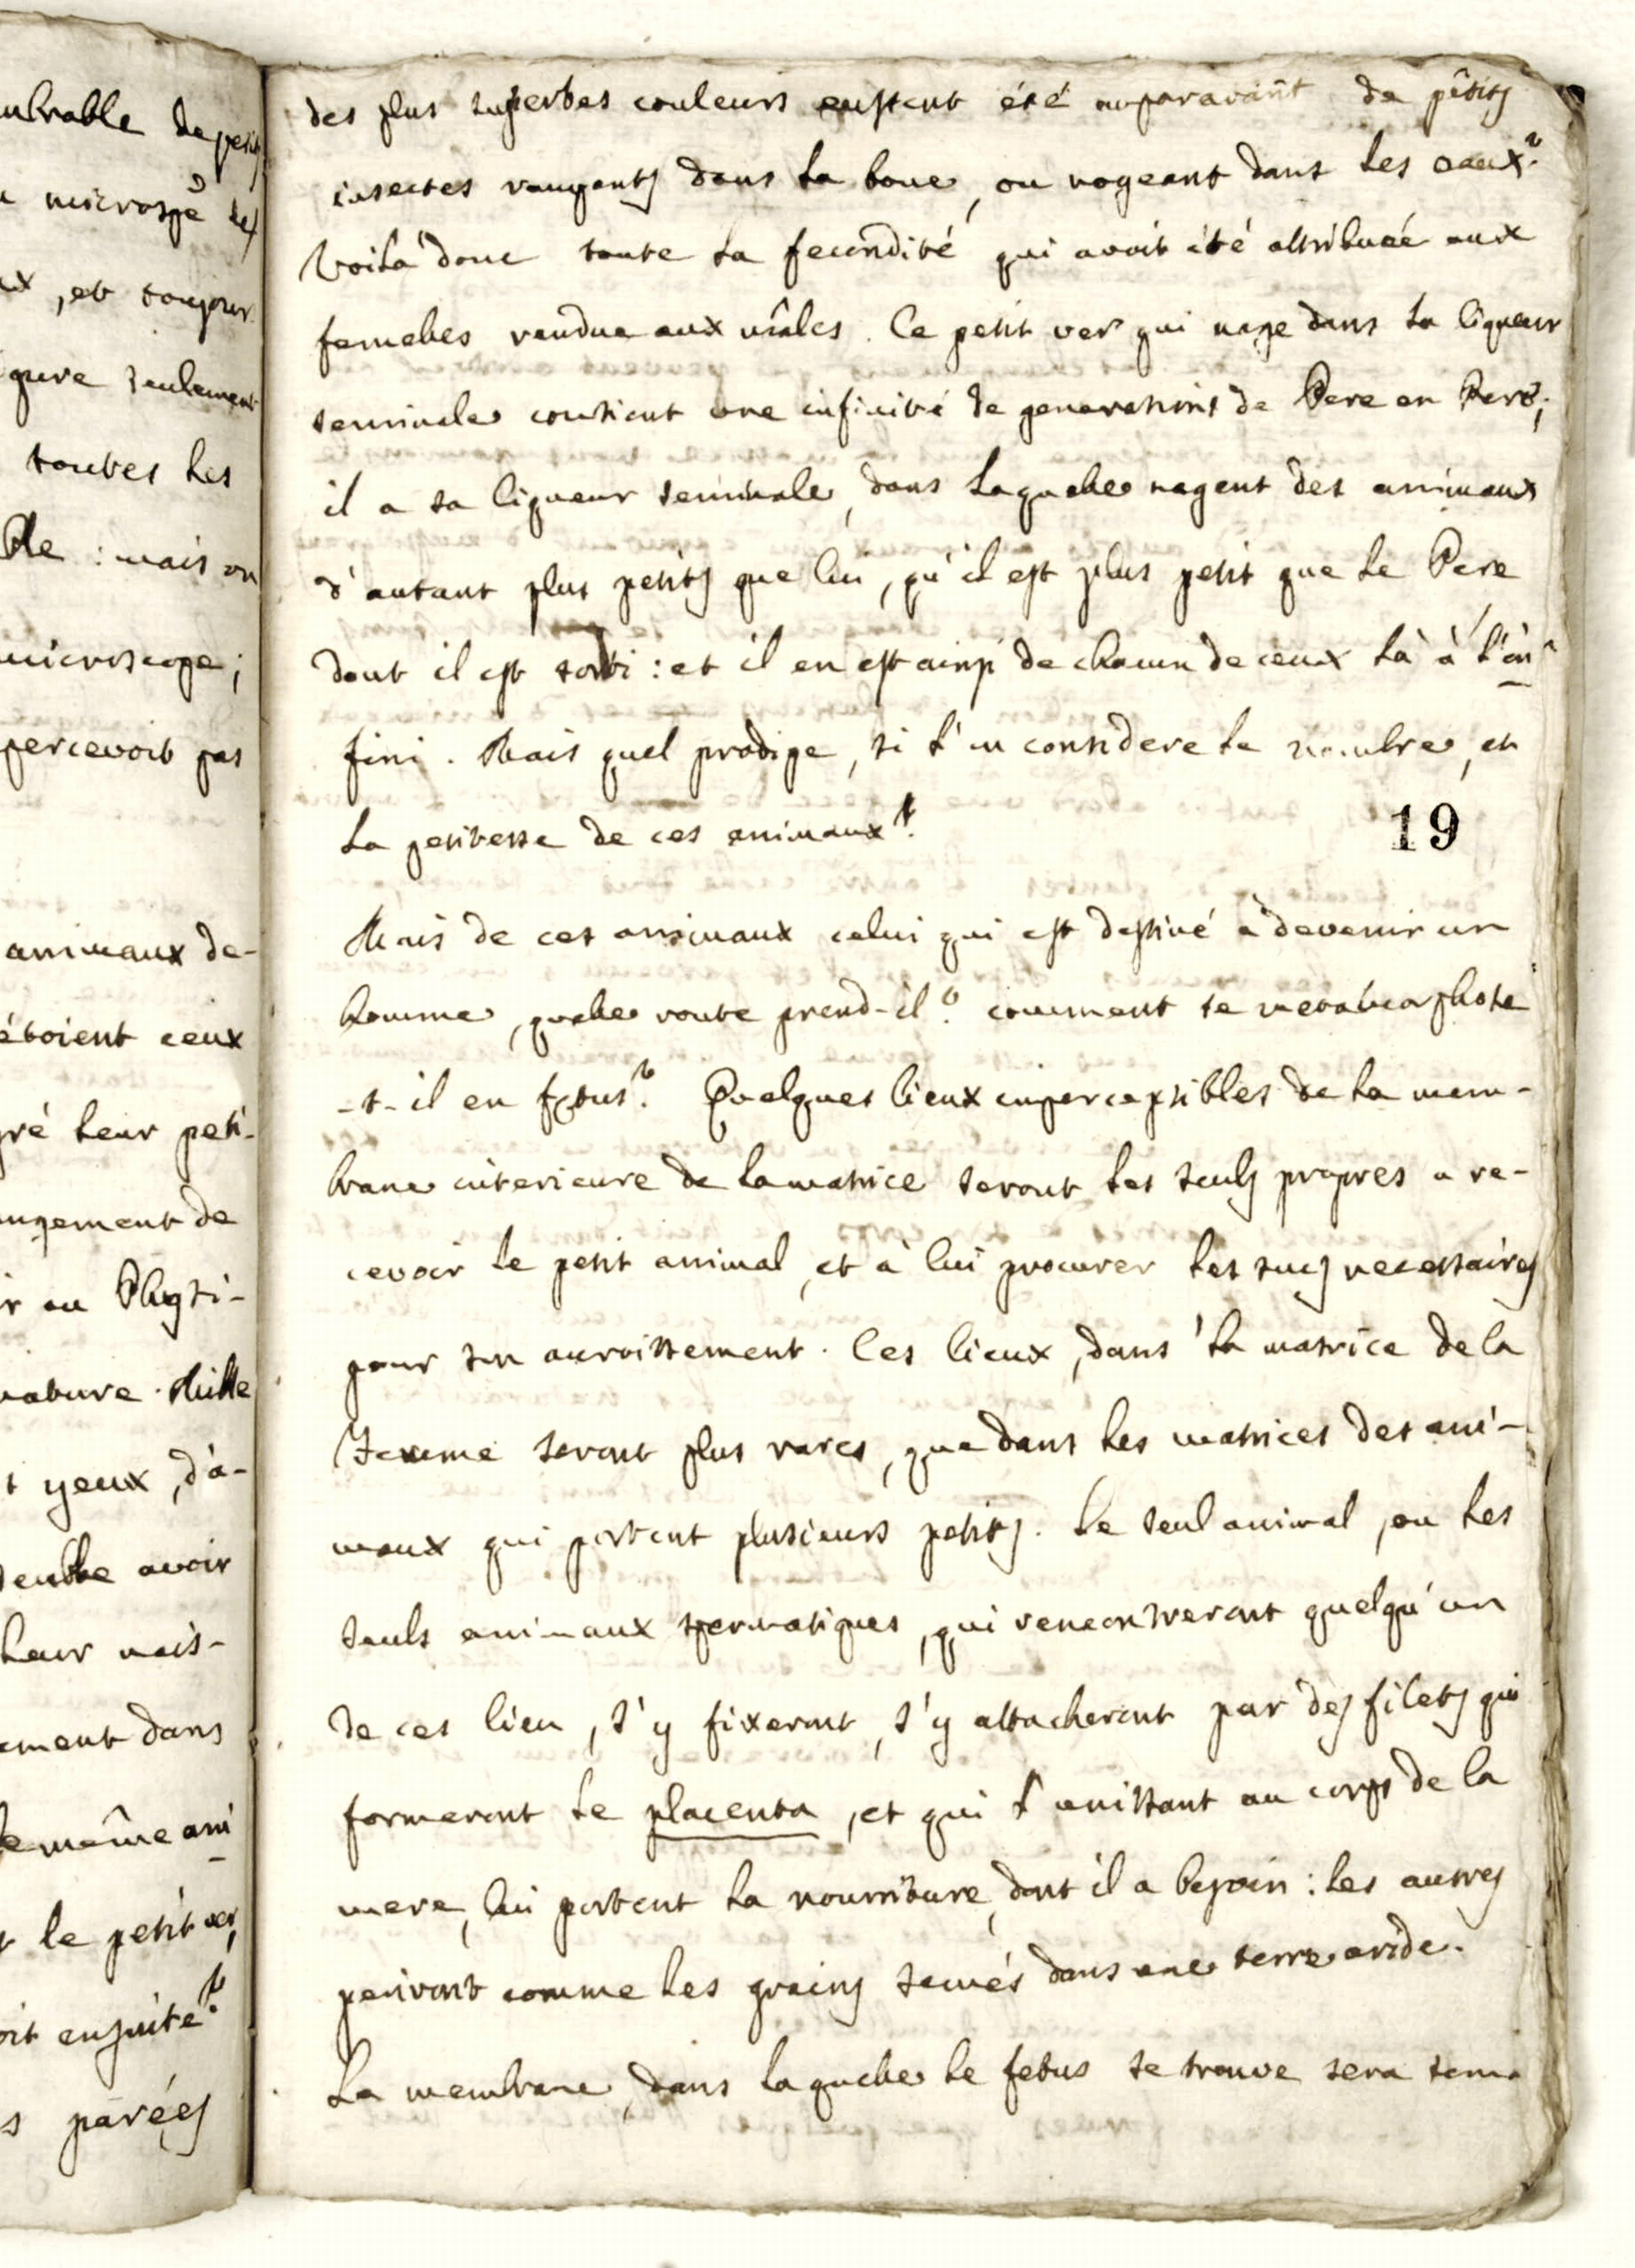 ulrable de petits
microspe des
ux, et toujour
gure seulement
toutes les
ble : mais on
microscope;
percevoit pas
animaux de-
étoient ceux
gré leur peti-
angement de
ir au Physi-
nature. Mille
yeux, d'a-
semble avoir
leur nais-
ement dans
le même ani
le petit ver,
oit ensuite?
s parées
des plus superbes couleurs eussent été auparavant de petits
insectes rampants dans la boue, ou nageant dans les eaux?
Voilà donc toute la fecondité qui avoit été attribuée aux
femelles rendue aux mâles. Ce petit ver qui nage dans la liqueur
seminale contient une infinité de generations de Pere en Pere;
il a sa liqueur seminale, dans laquelle nagent des animaux
d'autant plus petits que lui, qu'il est plus petit que le Pere
dont il est sorti : et il en est ainsi de chacun de ceux là à l'in
fini. Mais quel prodige, si l'on considere le nombre, et
la petitesse de ces animaux!
19
Mais de ces animaux celui qui est destiné à devenir un
homme, quelle route prend-il? comment se metamorphose
-t-il en fetus? Quelques lieux imperceptibles de la mem-
brane interieure de la matrice seront les seuls propres a re-
cevoir le petit animal, et à lui procurer les sucs necessaires
pour son accroissement. Ces lieux, dans la matrice de la
Femme seront plus rares, que dans les matrices des ani-
maux qui portent plusieurs petits. Le seul animal, ou les
seuls animaux spermatiques, qui rencontreront quelqu'un
de ces lieu, s'y fixeront, s'y attacheront par des filets qui
formeront le placenta, et qui l'unissant au corps de la
mere, lui portent la nourriture, dont il a besoin : les autres
periront comme les grains semés dans une terre aride.
La membrane, dans laquelle le fetus se trouve sera